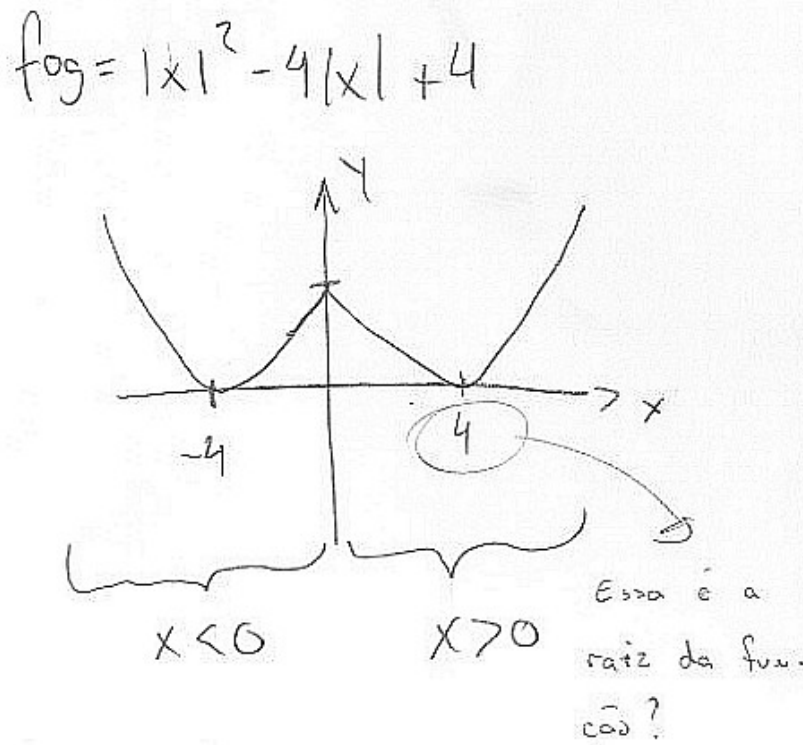 fog = |x|² - 4|x| + 4
Y
x
-4
4
x < 0
x > 0
Essa é a
raiz da fun-
ção?